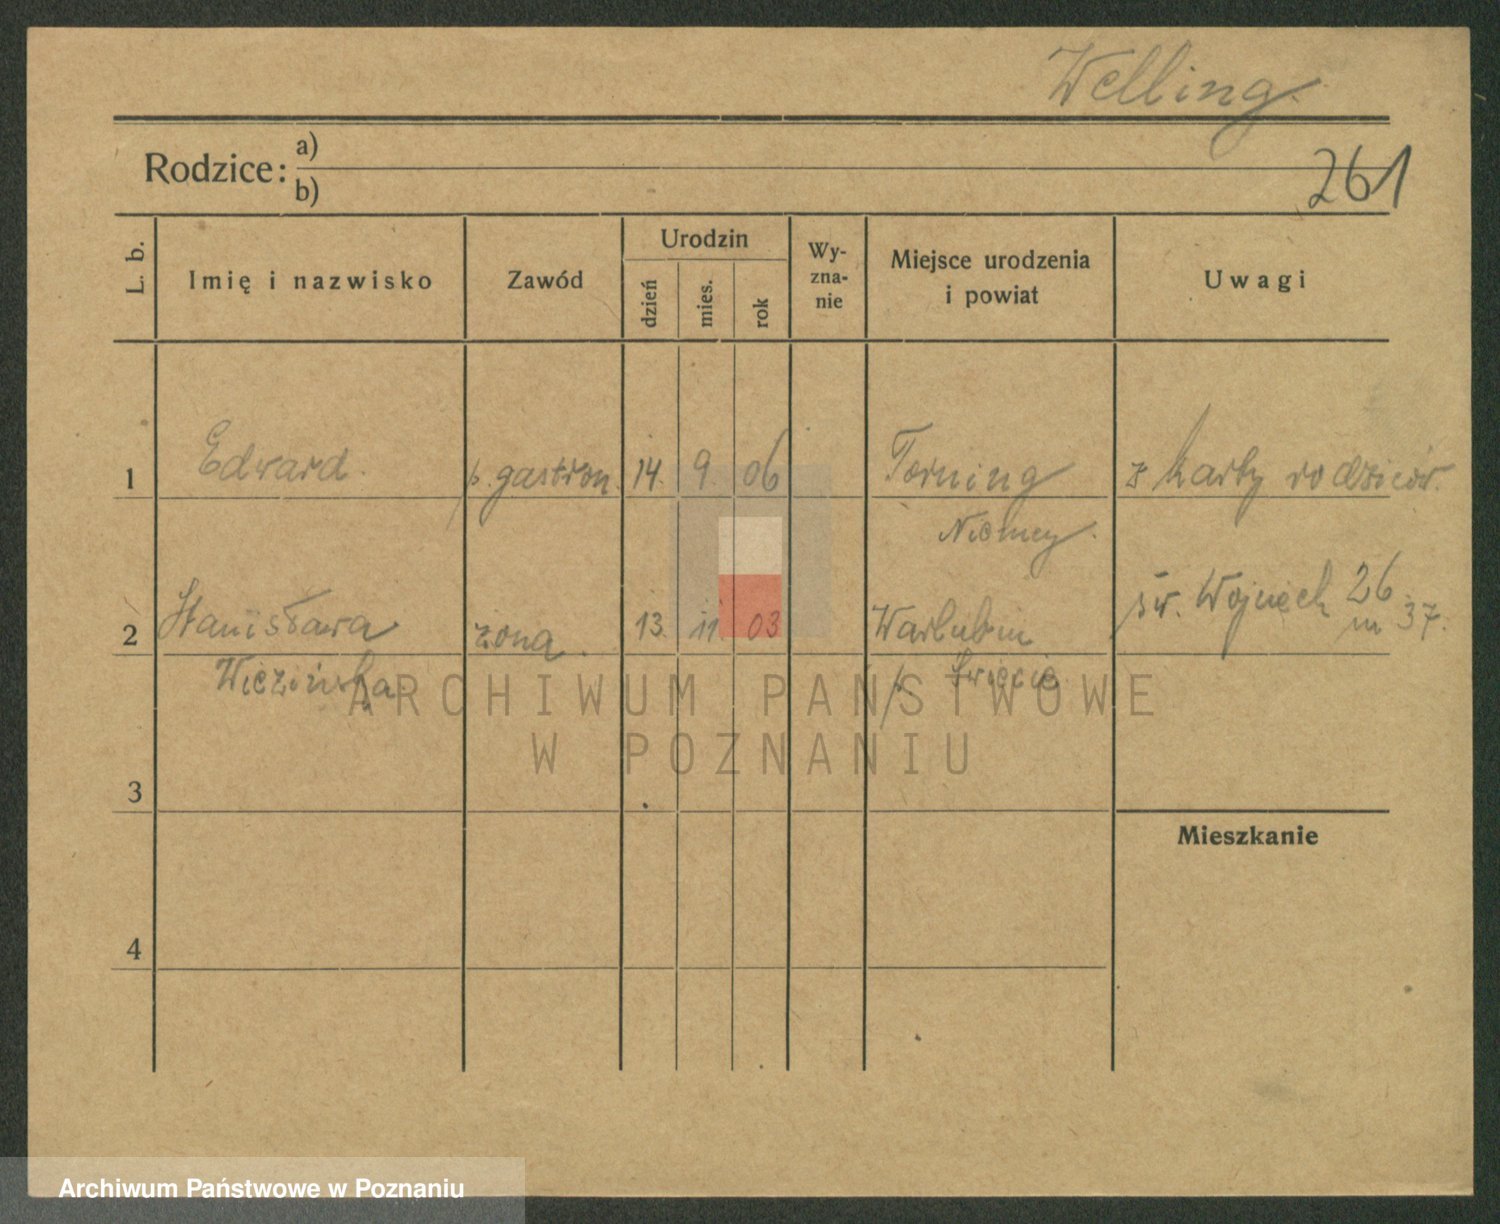 Welling.
Rodzice: a)
b)
261
L. b.
Imię i nazwisko
Zawód
Urodzin
dzień
mies.
rok
Wy-
zna-
nie
Miejsce urodzenia
i powiat
Uwagi
1 Edward. p. gastron. 14. 9. 06 Torning z karty rodziców.
Niemcy.
2 Stanisława żona. 13. 11. 03 Warlubin św. Wojciech 26
m 37.
p. Świecie.
3
Mieszkanie
4
ARCHIWUM PAŃSTWOWE
W POZNANIU
Archiwum Państwowe w Poznaniu